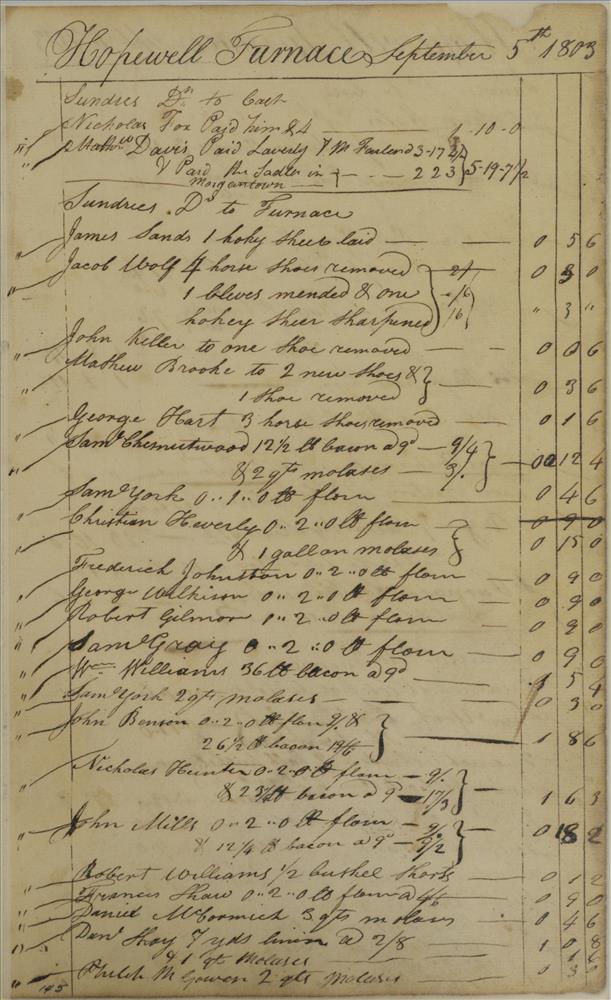 Hopewell Furnace September 5th 1803
Sundries Drs to Cash
Nicholas Fox Paid him & 4 1-10-0
Mathw Davis Paid Laverly & M Farland 3-17-4½
& Paid the Sadler in 2 2 3 } 5-19-7½
Morgantown
Sundries Drs to Furnace
James Sands 1 hoky sheer laid 0 5 6
Jacob Wolf 4 horse shoes removed 2/ 0 3 0
1 bleves mended & one /6
hokey sheer sharpened 16 " 3 "
John Keller to one shoe removed 0 0 6
Mathew Brooke to 2 new shoes &
1 shoe removed 0 3 6
George Hart 3 horse shoes removed 0 1 6
Saml Chesnutwood 12½ lb bacon a 9d 9/4
& 2 qts molases 3/. 0 12 4
Saml York 0..1..0 lb flour 0 4 6
Christian Heverly 0..2..0 lb flour 0 9 0
& 1 gallon molases 0 15 0
Frederick Johnston 0..2..0 lb flour 0 9 0
George Wilkison 0..2..0 lb flour 0 9 0
Robert Gilmore 0..2..0 lb flour 0 9 0
Saml Gray 0..2..0 lb flour 0 9 0
Wm Williams 36 lb bacon a 9d 1 5 4
Saml York 2 qts molases 0 3 0
John Benson 0..2..0 lb flour 9/.&
26½ lb bacon 19/6 1 8 6
Nicholas Hunter 0..2..0 lb flour 9/.
& 23 lb bacon a 9d 17/3 1 6 3
John Mills 0..2..0 lb flour 9/.
& 12¼ lb bacon a 9d 9/2 0 18 2
Robert Williams 1/2 bushel Shorts 0 1 2
Francis Shaw 0..2..0 lb flour a 4/6 0 9 0
Daniel McCormich 3 qts molases 0 4 6
Danl Shay 7 yds linin a 2/8 1 0 8
& 1 qt Molases 1 6
Philih McGowen 2 qts Molases 0 3 0
145